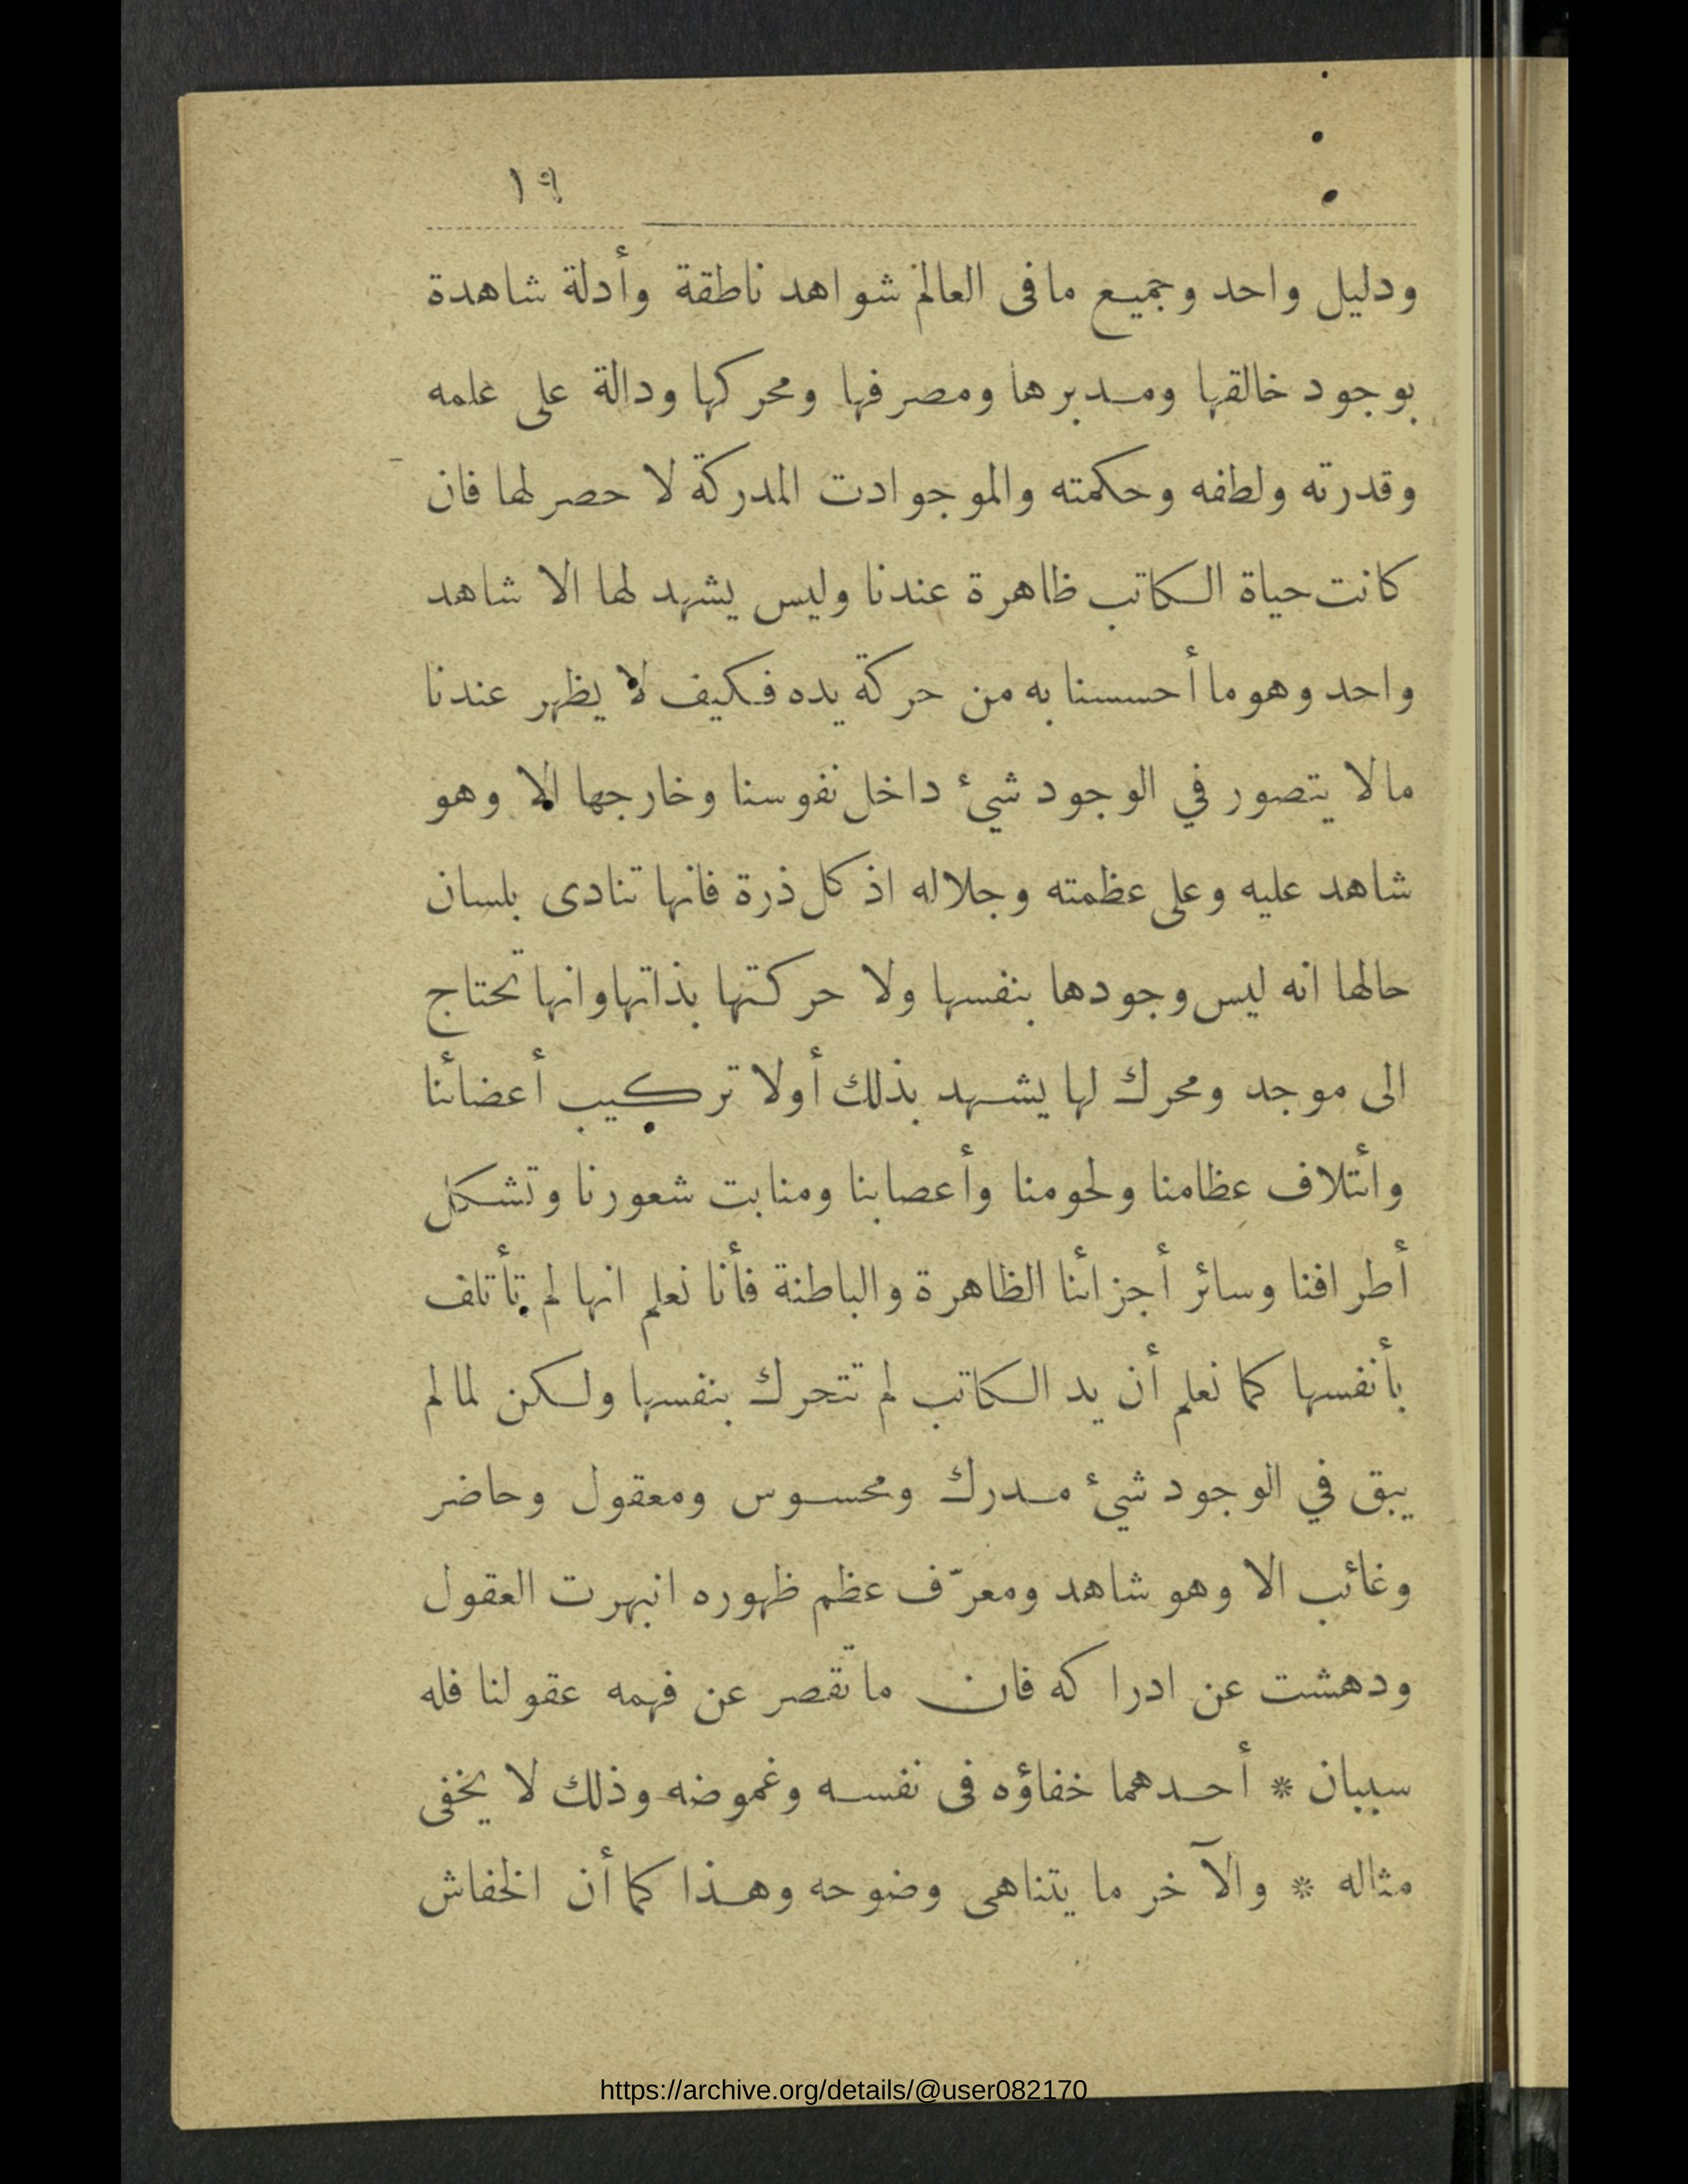 ١٩
ودليل واحد وجميع مافى العالم شواهد ناطقة وأدلة شاهدة
بوجود خالقها ومدبرها ومصرفها ومحركها ودالة على علمه
وقدرته ولطفه وحكمته والموجوادت المدركة لا حصر لها فان
كانت حياة الكاتب ظاهرة عندنا وليس يشهد لها الا شاهد
واحد وهو ما أحسسنا به من حركة يده فكيف لا يظهر عندنا
مالا يتصور في الوجود شيء داخل نفوسنا وخارجها الا وهو
شاهد عليه وعلى عظمته وجلاله اذ كل ذرة فانها تنادى بلسان
حالها انه ليس وجودها بنفسها ولا حركتها بذاتها وانها تحتاج
الى موجد ومحرك لها يشهد بذلك أولا تركيب أعضائنا
وائتلاف عظامنا ولحومنا وأعصابنا ومنابت شعورنا وتشكل
أطرافنا وسائر أجزائنا الظاهرة والباطنة فأنا نعلم انها لم تأتلف
بأنفسها كما نعلم أن يد الكاتب لم تتحرك بنفسها ولكن لما لم
يبق في الوجود شيء مدرك ومحسوس ومعقول وحاضر
وغائب الا وهو شاهد ومعرّف عظم ظهوره انبهرت العقول
ودهشت عن ادراكه فان ما تقصر عن فهمه عقولنا فله
سببان * أحدهما خفاؤه فى نفسه وغموضه وذلك لا يخفى
مثاله * والآخر ما يتناهى وضوحه وهذا كما أن الخفاش
https://archive.org/details/@user082170